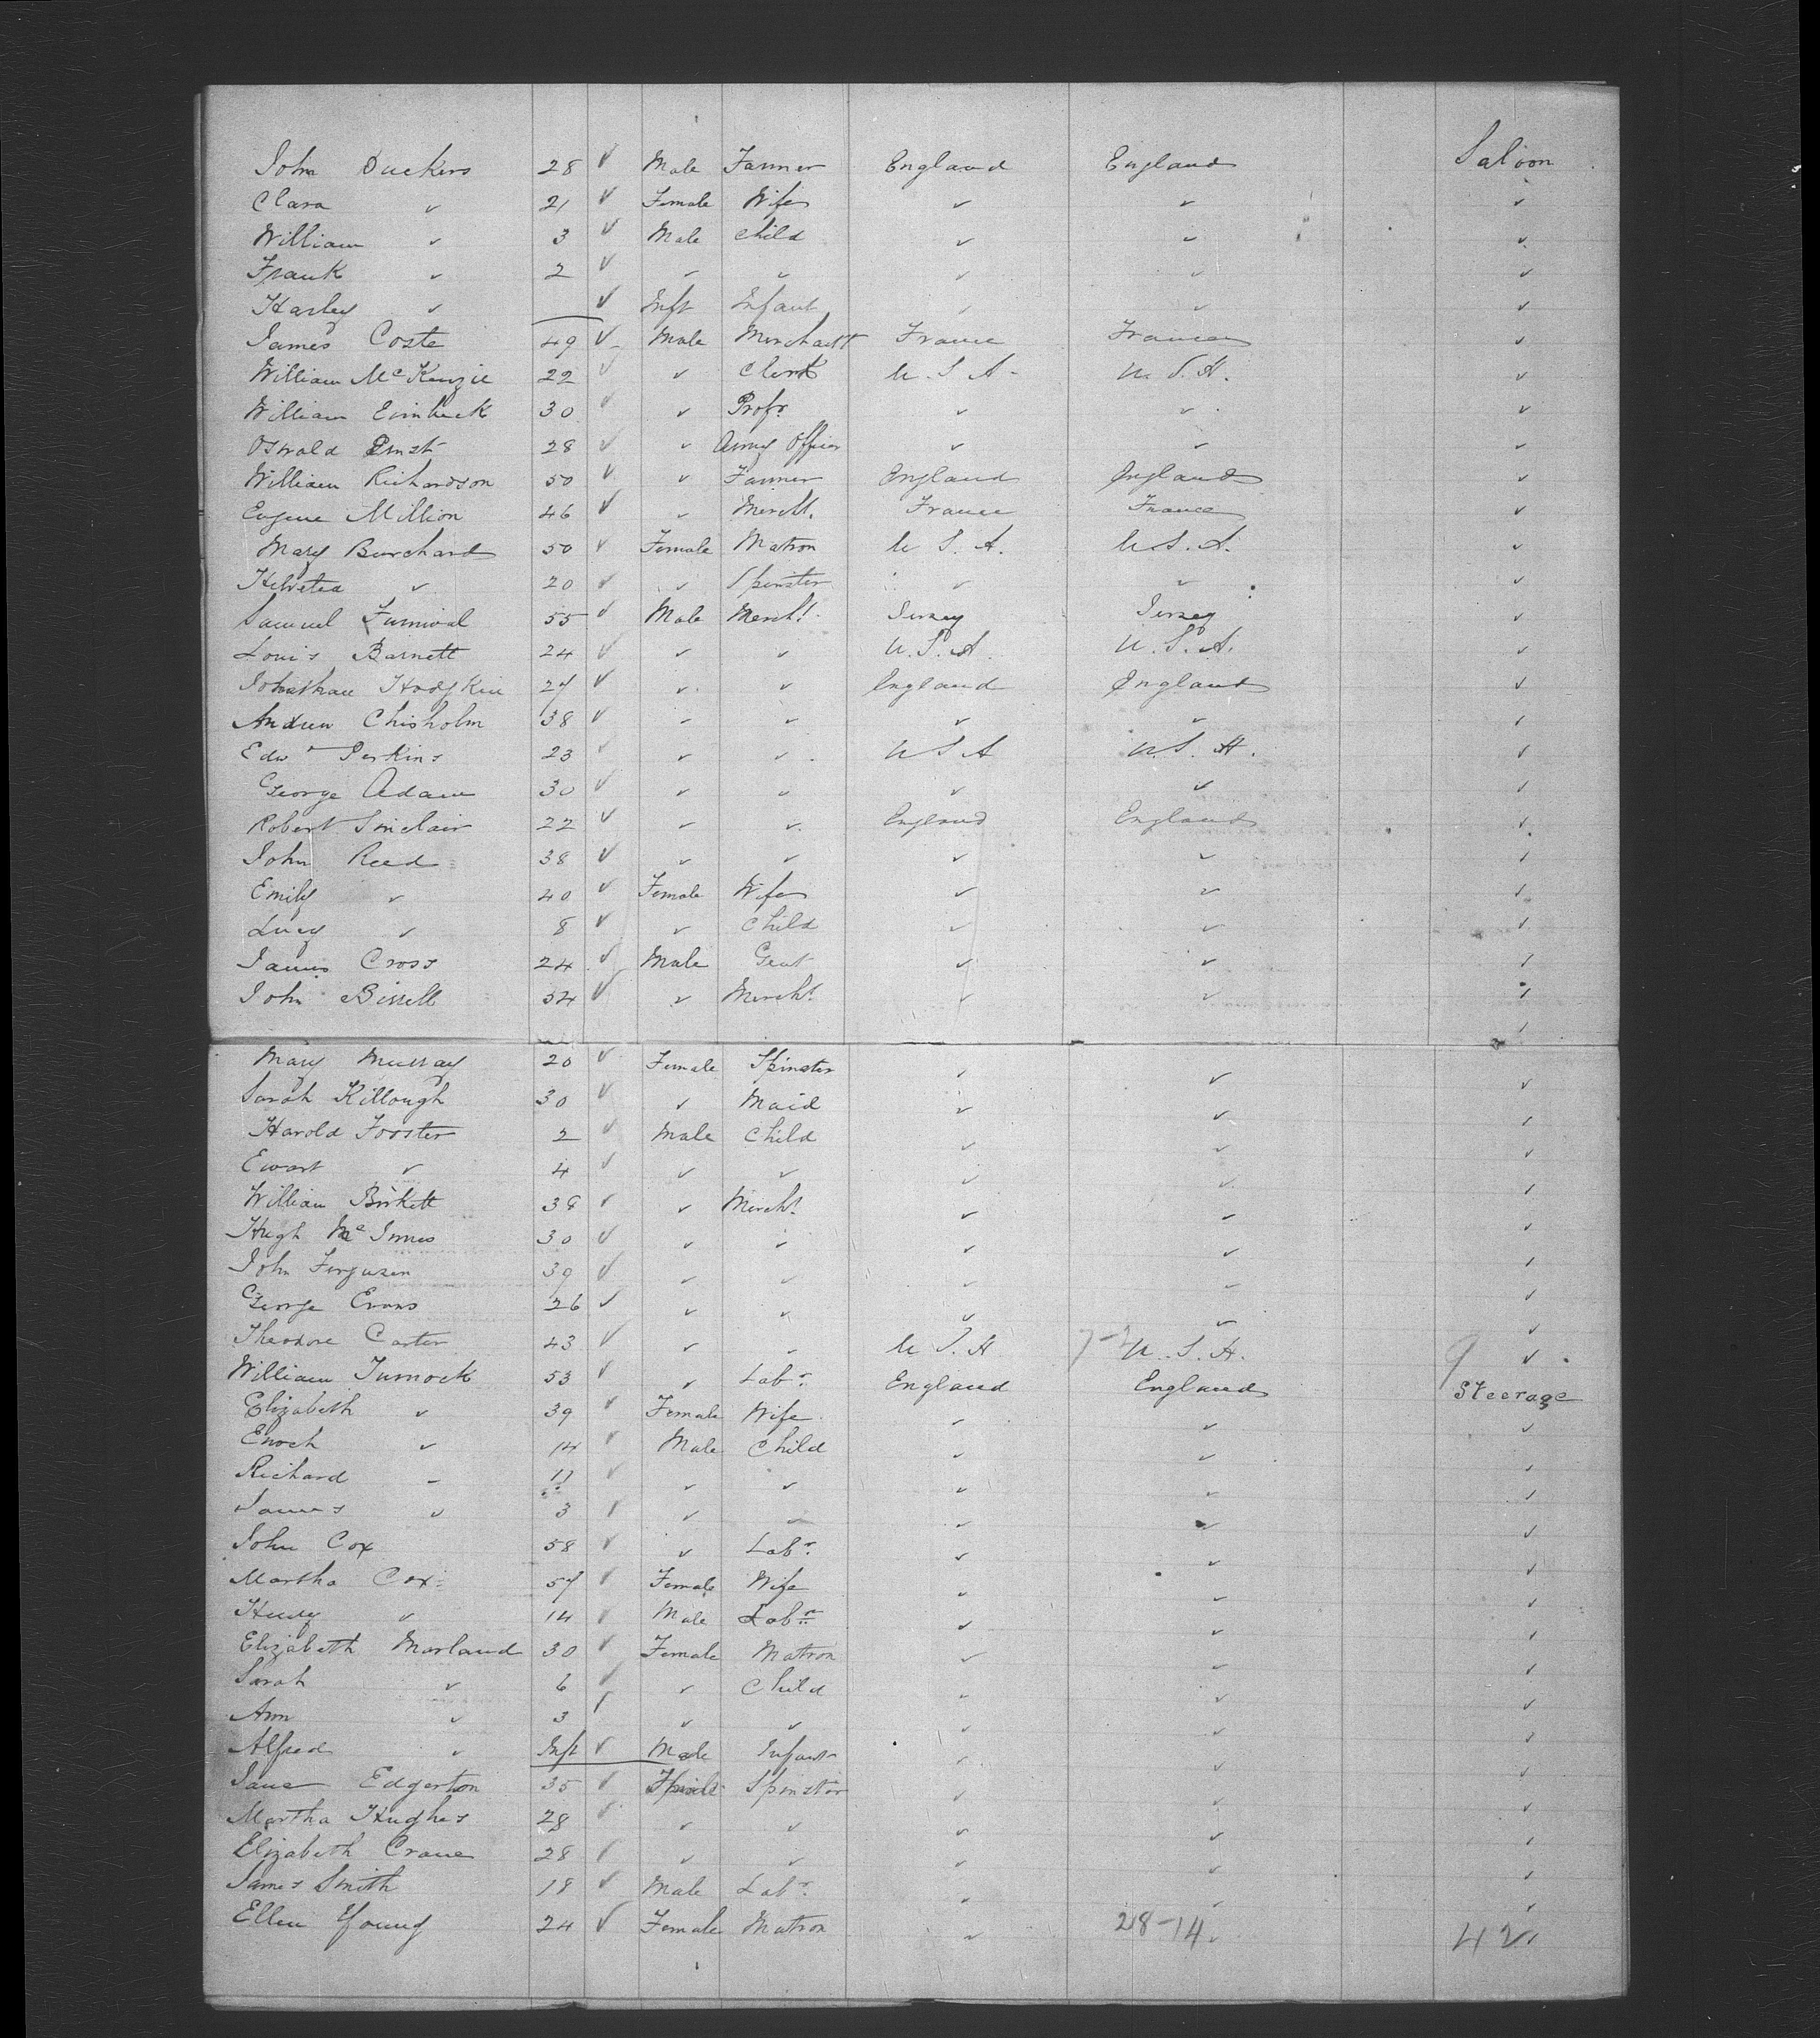 John Duckers 28 ✓ Male Farmer England England Saloon
Clara ✓ 21 ✓ Female Wife ✓ ✓ ✓
William ✓ 3 ✓ Male Child ✓ ✓ ✓
Frank ✓ 2 ✓ ✓ ✓ ✓ ✓ ✓
Harley ✓ ✓ Inft Infant ✓ ✓ ✓
James Coste 49 ✓ Male Merchant France France ✓
William McKenzie 22 ✓ ✓ Clerk U.S.A. U.S.A. ✓
William Eimbeck 30 ✓ ✓ Profr ✓ ✓ ✓
Oswald Ernst 28 ✓ ✓ Army Officer ✓ ✓ ✓
William Richardson 50 ✓ ✓ Farmer England England ✓
Eugene Million 46 ✓ ✓ Mercht. France France ✓
Mary Burchard 50 ✓ Female Matron U.S.A. U.S.A. ✓
Helvetia ✓ 20 ✓ ✓ Spinster ✓ ✓ ✓
Samuel Furnival 55 ✓ Male Mercht. Jersey Jersey ✓
Louis Barnett 24 ✓ ✓ ✓ U.S.A. U.S.A. ✓
Johnathan Hodgkin 27 ✓ ✓ ✓ England England ✓
Andrew Chisholm 38 ✓ ✓ ✓ ✓ ✓ ✓
Edwd Perkins 23 ✓ ✓ ✓ U S A U.S.A. ✓
George Adam 30 ✓ ✓ ✓ ✓ ✓ ✓
Robert Sinclair 22 ✓ ✓ ✓ England England ✓
John Reed 38 ✓ ✓ ✓ ✓ ✓ ✓
Emily ✓ 40 ✓ Female Wife ✓ ✓ ✓
Lucy ✓ 8 ✓ ✓ Child ✓ ✓ ✓
James Cross 24 ✓ Male Gent ✓ ✓ ✓
John Bissell 54 ✓ ✓ Mercht. ✓ ✓ ✓
Mary Murray 20 ✓ Female Spinster ✓ ✓ ✓
Sarah Killough 30 ✓ ✓ Maid ✓ ✓ ✓
Harold Forster 2 ✓ Male Child ✓ ✓ ✓
Ewart ✓ 4 ✓ ✓ ✓ ✓ ✓ ✓
William Birkett 38 ✓ ✓ Mercht. ✓ ✓ ✓
Hugh McInnes 30 ✓ ✓ ✓ ✓ ✓ ✓
John Ferguson 39 ✓ ✓ ✓ ✓ ✓ ✓
George Evans 26 ✓ ✓ ✓ ✓ ✓ ✓
Theodore Carter 43 ✓ ✓ ✓ U.S.A. U.S.A. 9 ✓
William Turnock 53 ✓ ✓ Labr. England England Steerage
Elizabeth ✓ 39 ✓ Female Wife ✓ ✓ ✓
Enoch ✓ 14 ✓ Male Child ✓ ✓ ✓
Richard ✓ 11 ✓ ✓ ✓ ✓ ✓ ✓
James ✓ 3 ✓ ✓ ✓ ✓ ✓ ✓
John Cox 58 ✓ ✓ Labr. ✓ ✓ ✓
Martha Cox 57 ✓ Female Wife ✓ ✓ ✓
Henry ✓ 14 ✓ Male Labr. ✓ ✓ ✓
Elizabeth Morland 30 ✓ Female Matron ✓ ✓ ✓
Sarah ✓ 6 ✓ ✓ Child ✓ ✓ ✓
Ann ✓ 3 ✓ ✓ ✓ ✓ ✓ ✓
Alfred ✓ Inft ✓ Male Infant ✓ ✓ ✓
Jane Edgerton 35 ✓ Spinster ✓ ✓ ✓
Martha Hughes 28 ✓ ✓ ✓ ✓ ✓ ✓
Elizabeth Crane 28 ✓ ✓ ✓ ✓ ✓ ✓
James Smith 18 ✓ Male Labr. ✓ ✓ ✓
Ellen Young 24 ✓ Female Matron ✓ 28-14 ✓ 42 ✓